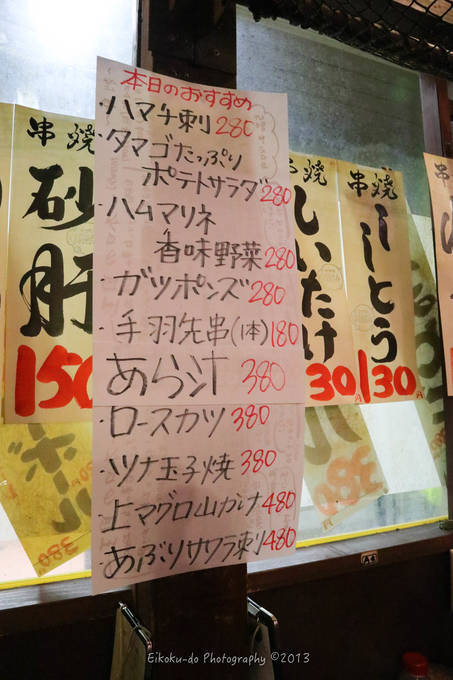 本日のおすすめ
・ハマチ刺 280
・タマゴたっぷり
ポテトサラダ 280
・ハムマリネ
香味野菜 280
・ガツポンズ 280
・手羽先串(1本) 180
あら汁 380
・ロースカツ 380
・ツナ玉子焼 380
・上マグロ山かけ 480
・あぶりサワラ刺 480
串焼
砂肝
150
串焼
しいたけ
130
串焼
ししとう
130
串
380
380
Eikoku-do Photography ©2013